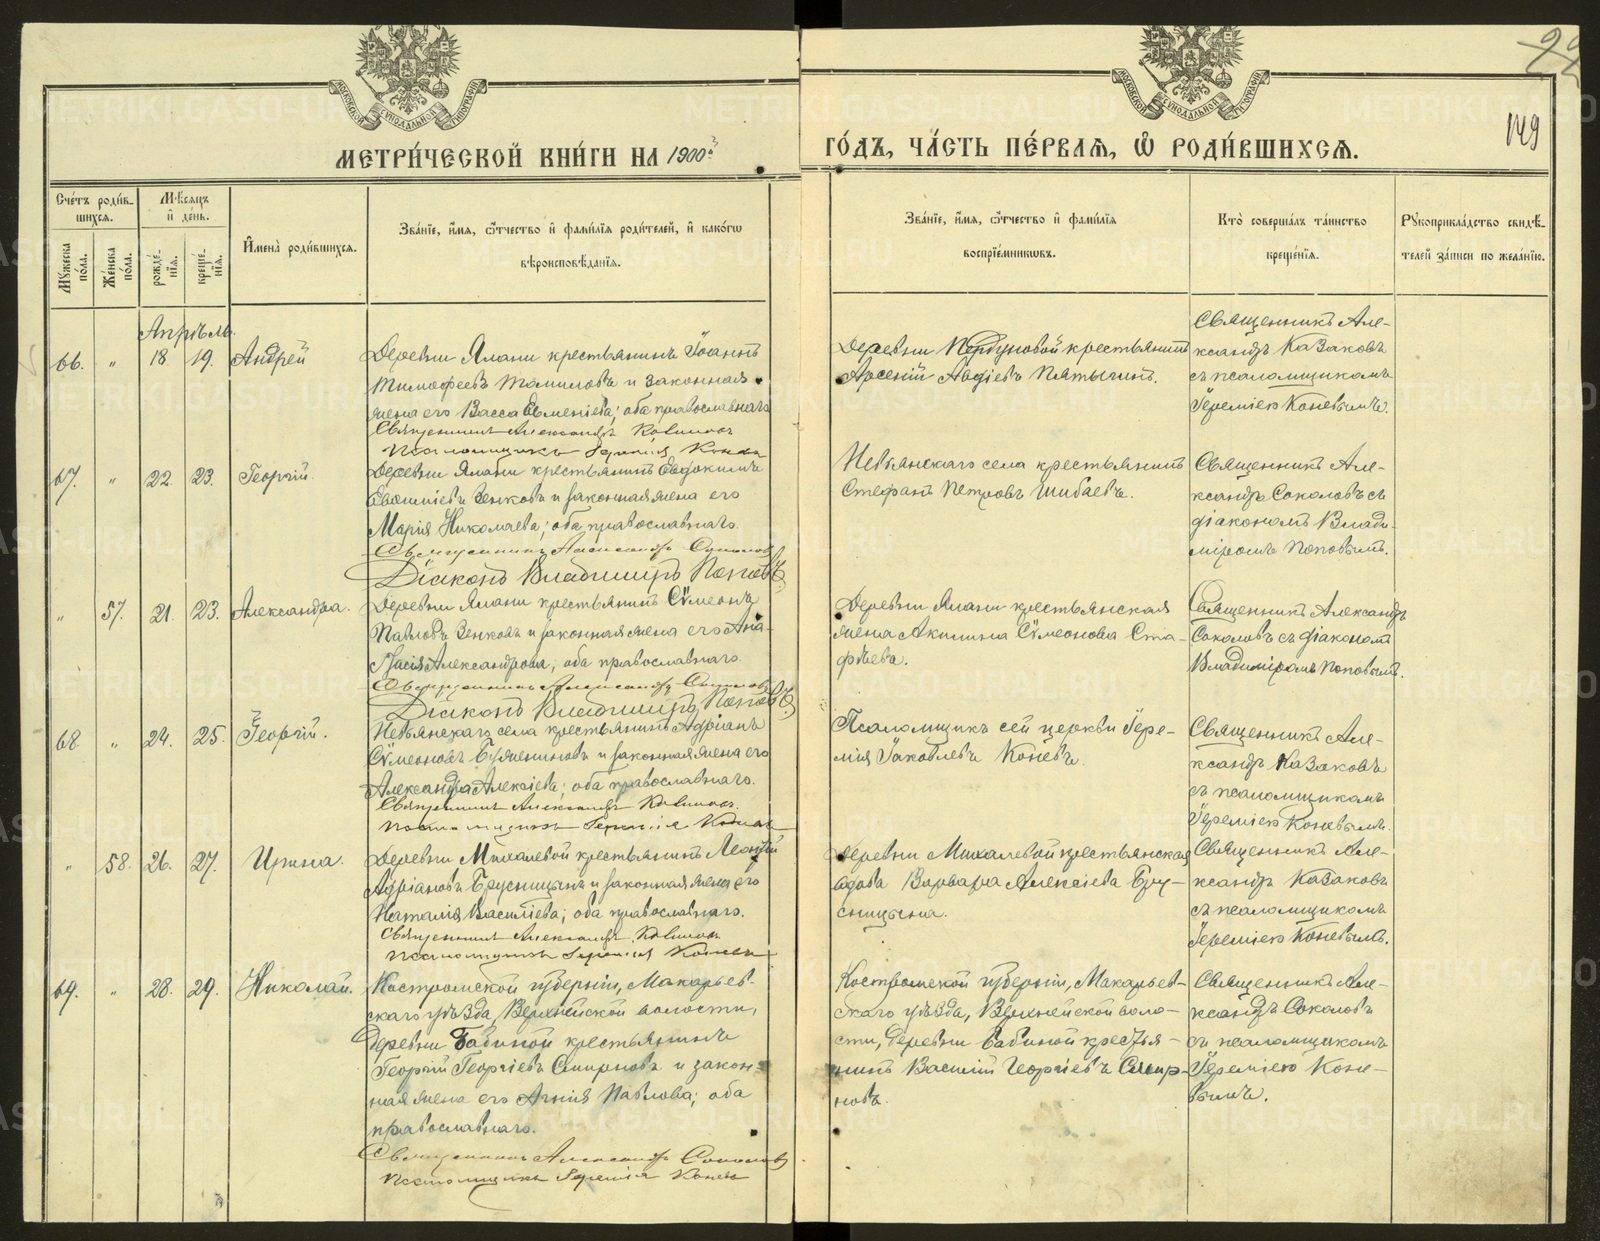 99
149
МОСКОВСКОЙ СѴНОДАЛЬНОЙ ТИПОГРАФІИ
МОСКОВСКОЙ СѴНОДАЛЬНОЙ ТИПОГРАФІИ
МЕТРИ́ЧЕСКОЙ КНИ́ГИ НА 1900й
ГО́ДЪ, ЧА́СТЬ ПЕ́РВАѦ, Ѡ РОДИ́ВШИХСѦ.
Сче́тъ роди́в-
шихсѧ.
Мꙋ́жеска по́ла.
Же́нска по́ла.
Мѣ́сѧцъ
и҆ де́нь.
рожде́-нїѧ.
креще́-нїѧ.
И҆мена̀ роди́вшихсѧ.
Зва́нїе, и҆́мѧ, ѻ҆́тчество и҆ фамѝлїѧ роди́телей, и҆ како́гѡ
вѣроисповѣ́данїѧ.
Зва́нїе, и҆́мѧ, ѻ҆́тчество и҆ фамѝлїѧ
воспрїе́мникѡвъ.
Кто̀ соверша́лъ та́инство
креще́нїѧ.
Рꙋкоприкла́дство свидѣ́-
телей за́писи по жела́нїю.
Апрѣль.
66. " 18 19. Андрей
Деревни Ялани крестьянинъ Іоаннъ
Тимофеевъ Томиловъ и законная
жена его Васса Евменіева; оба православнаго
Священникъ Александръ Казаковъ
Псаломщикъ Іеремія Коневъ
Деревни крестьянинъ
Арсеній Авдіевъ Пятыгинъ.
Священникъ Але-
ксандръ Казаковъ
съ псаломщикомъ
Іереміею Коневымъ.
67. " 22. 23. Георгій.
Деревни Ялани крестьянинъ Евдокимъ
Зенковъ и законная жена его
Марія Николаева; оба православнаго.
Священникъ Александръ Соколовъ
Діаконъ Владиміръ Поповъ
Невьянскаго села крестьянинъ
Стефанъ Петровъ Шибаевъ.
Священникъ Але-
ксандръ Соколовъ съ
діакономъ Влади-
міромъ Поповымъ.
" 57. 21. 23. Александра.
Деревни Ялани крестьянинъ Сѵмеонъ
Павловъ Зенковъ и законная жена его Ана-
стасія Александрова, оба православнаго.
Священникъ Александръ Соколовъ
Діаконъ Владиміръ Поповъ
Деревни Ялани крестьянская
жена Акилина Сѵмеонова Ста-
фѣева.
Священникъ Александръ
Соколовъ съ діакономъ
Владиміромъ Поповымъ.
68. " 24. 25. Георгій.
Невьянскаго села крестьянинъ Адріанъ
Сѵмеоновъ и законная жена его
Александра Алексіева; оба православнаго.
Священникъ Александръ Казаковъ.
Псаломщикъ Іеремія Коневъ
Псаломщикъ сей церкви Іере-
мія Іаковлевъ Коневъ.
Священникъ Але-
ксандръ Казаковъ
съ псаломщикомъ
Іереміею Коневымъ.
" 58. 26. 27. Ирина.
Деревни Михалевой крестьянинъ Леонтій
Адріановъ Брусницынъ и законная жена его
Наталія Василіева; оба православнаго.
Священникъ Александръ Казаковъ
Псаломщикъ Іеремія Коневъ
Деревни Михалевой крестьянская
вдова Варвара Алексіева Бру-
сницына.
Священникъ Але-
ксандръ Казаковъ
съ псаломщикомъ
Іереміею Коневымъ.
69. " 28. 29. Николай.
Костромской губерніи, Макарьев-
скаго уѣзда, Верхнейской волости,
Деревни Бабиной крестьянинъ
Георгій Георгіевъ Смирновъ и закон-
ная жена его Агнія Павлова; оба
православнаго.
Священникъ Александръ Соколовъ
Псаломщикъ Іеремія Коневъ
Костромской губерніи, Макарьев-
скаго уѣзда, Верхнейской воло-
сти, деревни Бабиной крестья-
нинъ Василій Георгіевъ Смир-
новъ.
Священникъ Але-
ксандръ Соколовъ
съ псаломщикомъ
Іереміею Коне-
вымъ.
METRIKI.GASO-URAL.RU